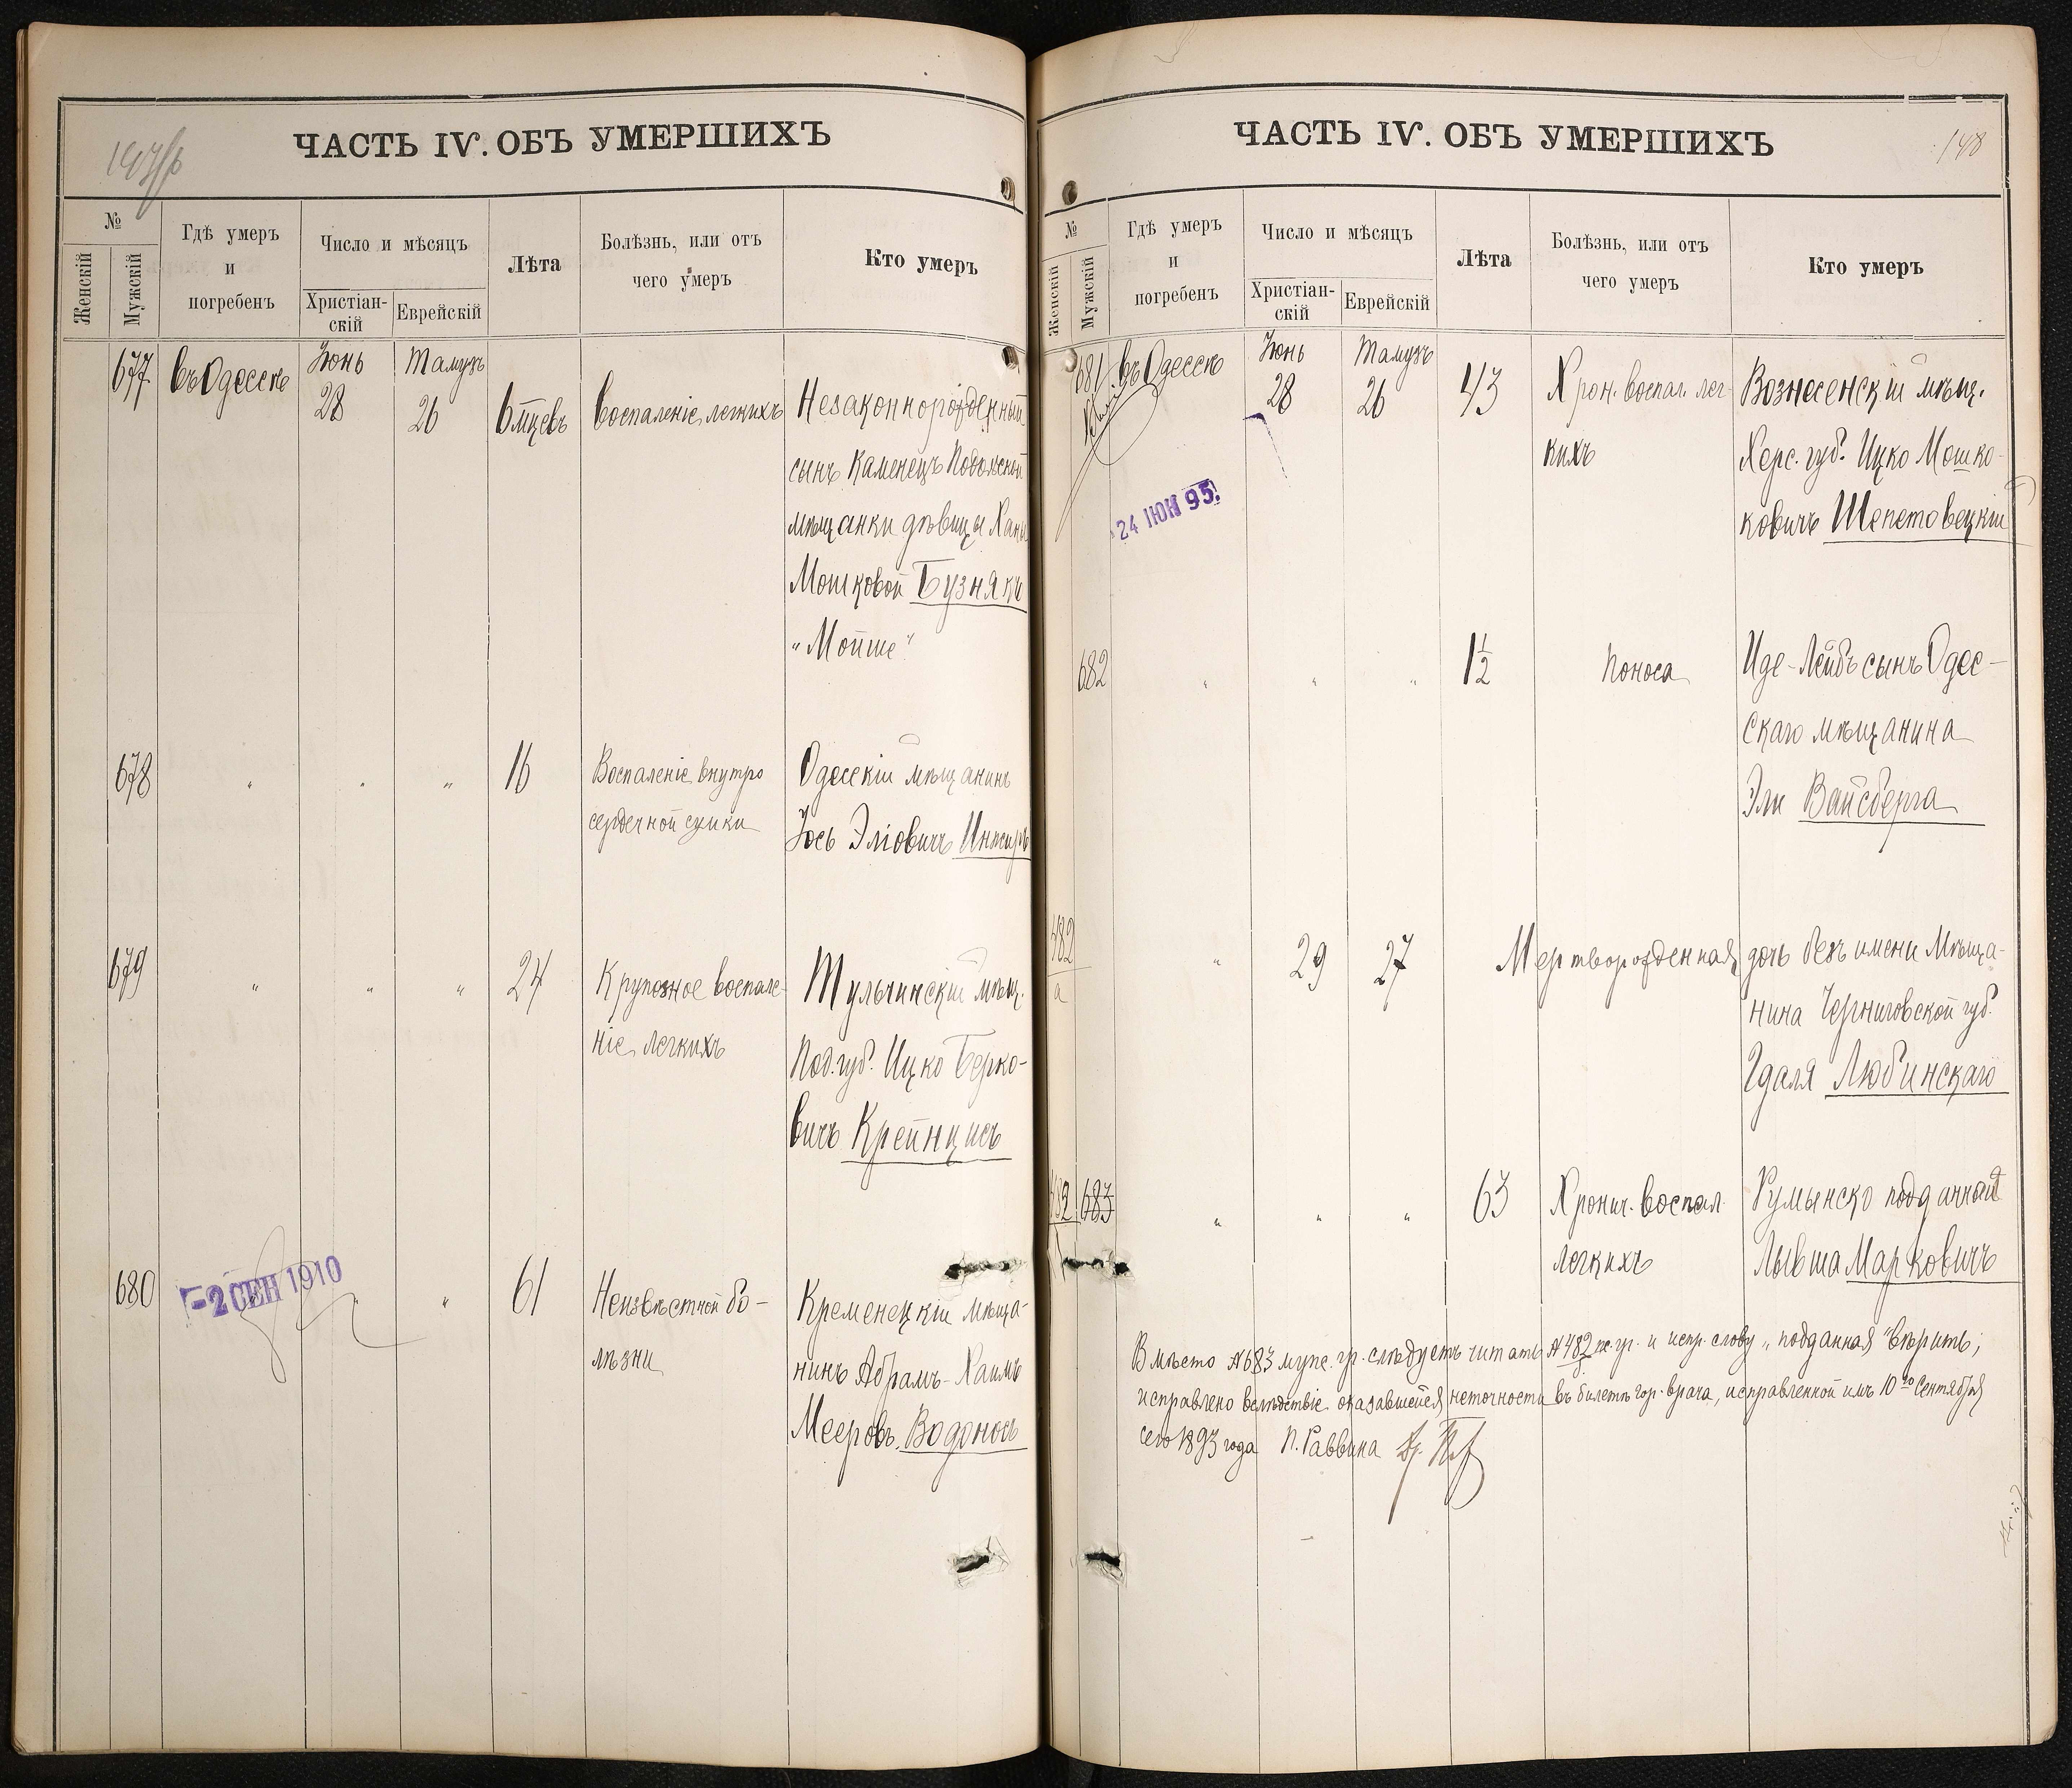 147/б
ЧАСТЬ IV. ОБЪ УМЕРШИХЪ
№
Женскій
Мужскій
Гдѣ умеръ
и
погребенъ
Число и мѣсяцъ
Христіан-
скій
Еврейскій
Лѣта
Болѣзнь, или отъ
чего умеръ
Кто умеръ
677 въ Одессѣ Іюнь 28 Тамузъ 26 6 мцевъ Воспаленіе легкихъ Незаконнорожденный
сынъ Каменецъ Подольской
мѣщанки дѣвицы Ханы
Мошковой Бузнякъ
"Мойше"
678 " " " 16 Воспаленіе внутро Одесскій мѣщанинъ
сердечной сумки Іось Эліовичъ
679 " " " 24 Крупозное воспале- Тульчинскій мѣщ.
ніе легкихъ Под. губ. Ицко Берко-
вичъ Крейнцисъ
680 -2 СЕН 1910 " " 61 Неизвѣстной бо- Кременецкій мѣща-
лѣзни нинъ Абрамъ-Хаимъ
Мееровъ Водоносъ
148
ЧАСТЬ IV. ОБЪ УМЕРШИХЪ
№
Женскій
Мужскій
Гдѣ умеръ
и
погребенъ
Число и мѣсяцъ
Христіан-
скій
Еврейскій
Лѣта
Болѣзнь, или отъ
чего умеръ
Кто умеръ
681 въ Одессѣ Іюнь 28 Тамузъ 26 43 Хрон. воспал. лег- Вознесенскій мѣщ.
кихъ Херс. губ. Ицко Мошко-
ковичъ Шепетовецкій
24 ІЮН 95.
682 " " " 1½ Поноса Иде-Лейбъ сынъ Одес-
скаго мѣщанина
Эли Вайсберга
482 " 29 27 Мертворожденная дочь безъ имени Мѣща-
а нина Черниговской губ.
Гдаля Любинскаго
482 683 " " " 63 Хронич. воспал. Румынско подданная
легкихъ Лывша Марковичъ
Вмѣсто №683 мужс. гр. слѣдуетъ читать №482 ж. гр. и испр. слову "подданная" вѣрить;
исправлено вслѣдствіе оказавшейся неточности въ билетѣ гор. врача, исправленной имъ 10го Сентября
сего 1893 года П. Раввина